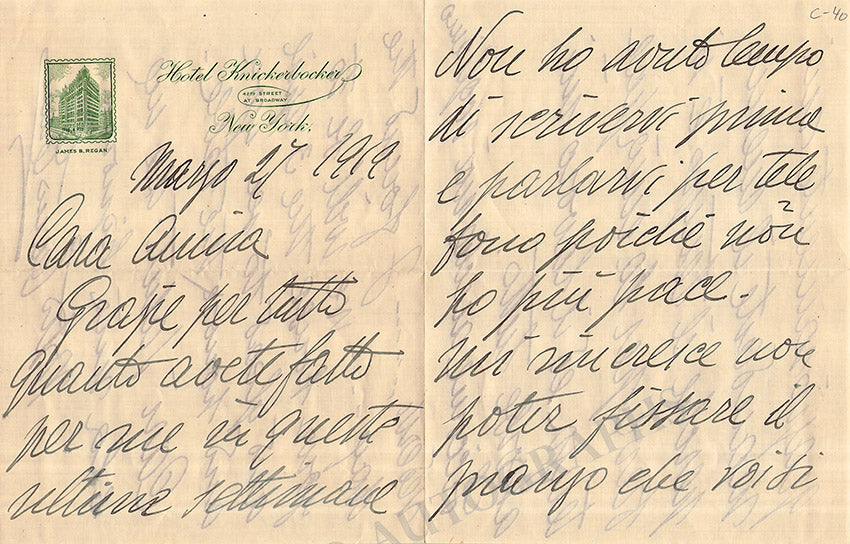 Hotel Knickerbocker
42ND STREET
AT BROADWAY
New York.
JAMES B. REGAN
Marzo 27 1919
Cara Amica
Grazie per tutto
quanto avete fatto
per me in queste
ultime settimane
C-40
Non ho avuto tempo
di scrivervi prima
e parlarvi per tele
fono poichè non
ho più pace.
Mi rincresce non
poter fissare il
pranzo che voi